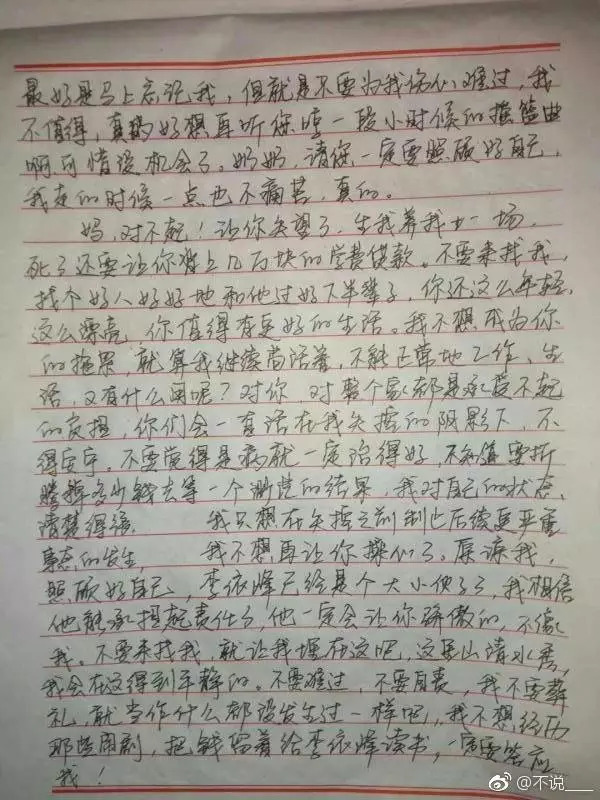 最好是马上忘记我，但就是不要为我伤心难过，我
不值得，真的好想再听你唱一段小时候的摇篮曲
啊可惜没机会了。奶奶，请您一定要照顾好自己，
我走的时候一点也不痛苦，真的。
妈，对不起！让你失望了，生我养我廿一场，
死了还要让你难上几万块的学费贷款。不要来找我，
找个好人好好地和他过好下半辈子，你还这么年轻，
这么漂亮，你值得有更好的生活。我不想成为你
的拖累，就算我继续苟活着，不能正常地工作、生
活，又有什么用呢？对你，对整个家都是承受不起
的负担，你们会一直活在我失控的阴影下，不
得安宁。不要觉得是病就一定治得好，不知道要折
腾掉多少钱去等一个渺茫的结果，我对自己的状态
清楚得很 我只想在失控之前制止后续更严重
事态的发生， 我不想再让你操心了，原谅我，
照顾好自己，李依峰已经是个大小伙子了，我相信
他能承担起责任了，他一定会让你骄傲的，不像
我。不要来找我，就让我埋在这吧，这里山清水秀，
我会在这得到平静的。不要难过，不要自责，我不要葬
礼，就当作什么都没发生过一样吧，我不想经历
那些闹剧，把钱留着给李依峰读书，一定要答应
我！
@不说___